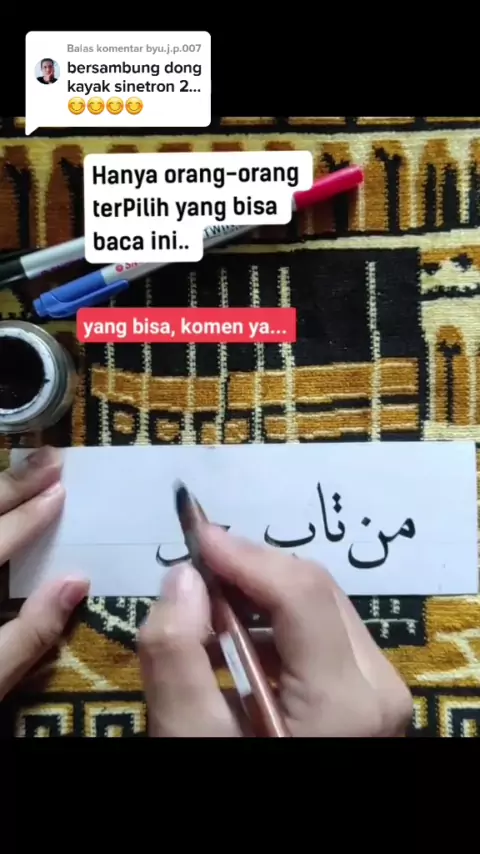 Balas komentar byu.j.p.007
bersambung dong
kayak sinetron 2...
😊😊😊😊
Hanya orang-orang
terPilih yang bisa
baca ini..
yang bisa, komen ya...
من تاب